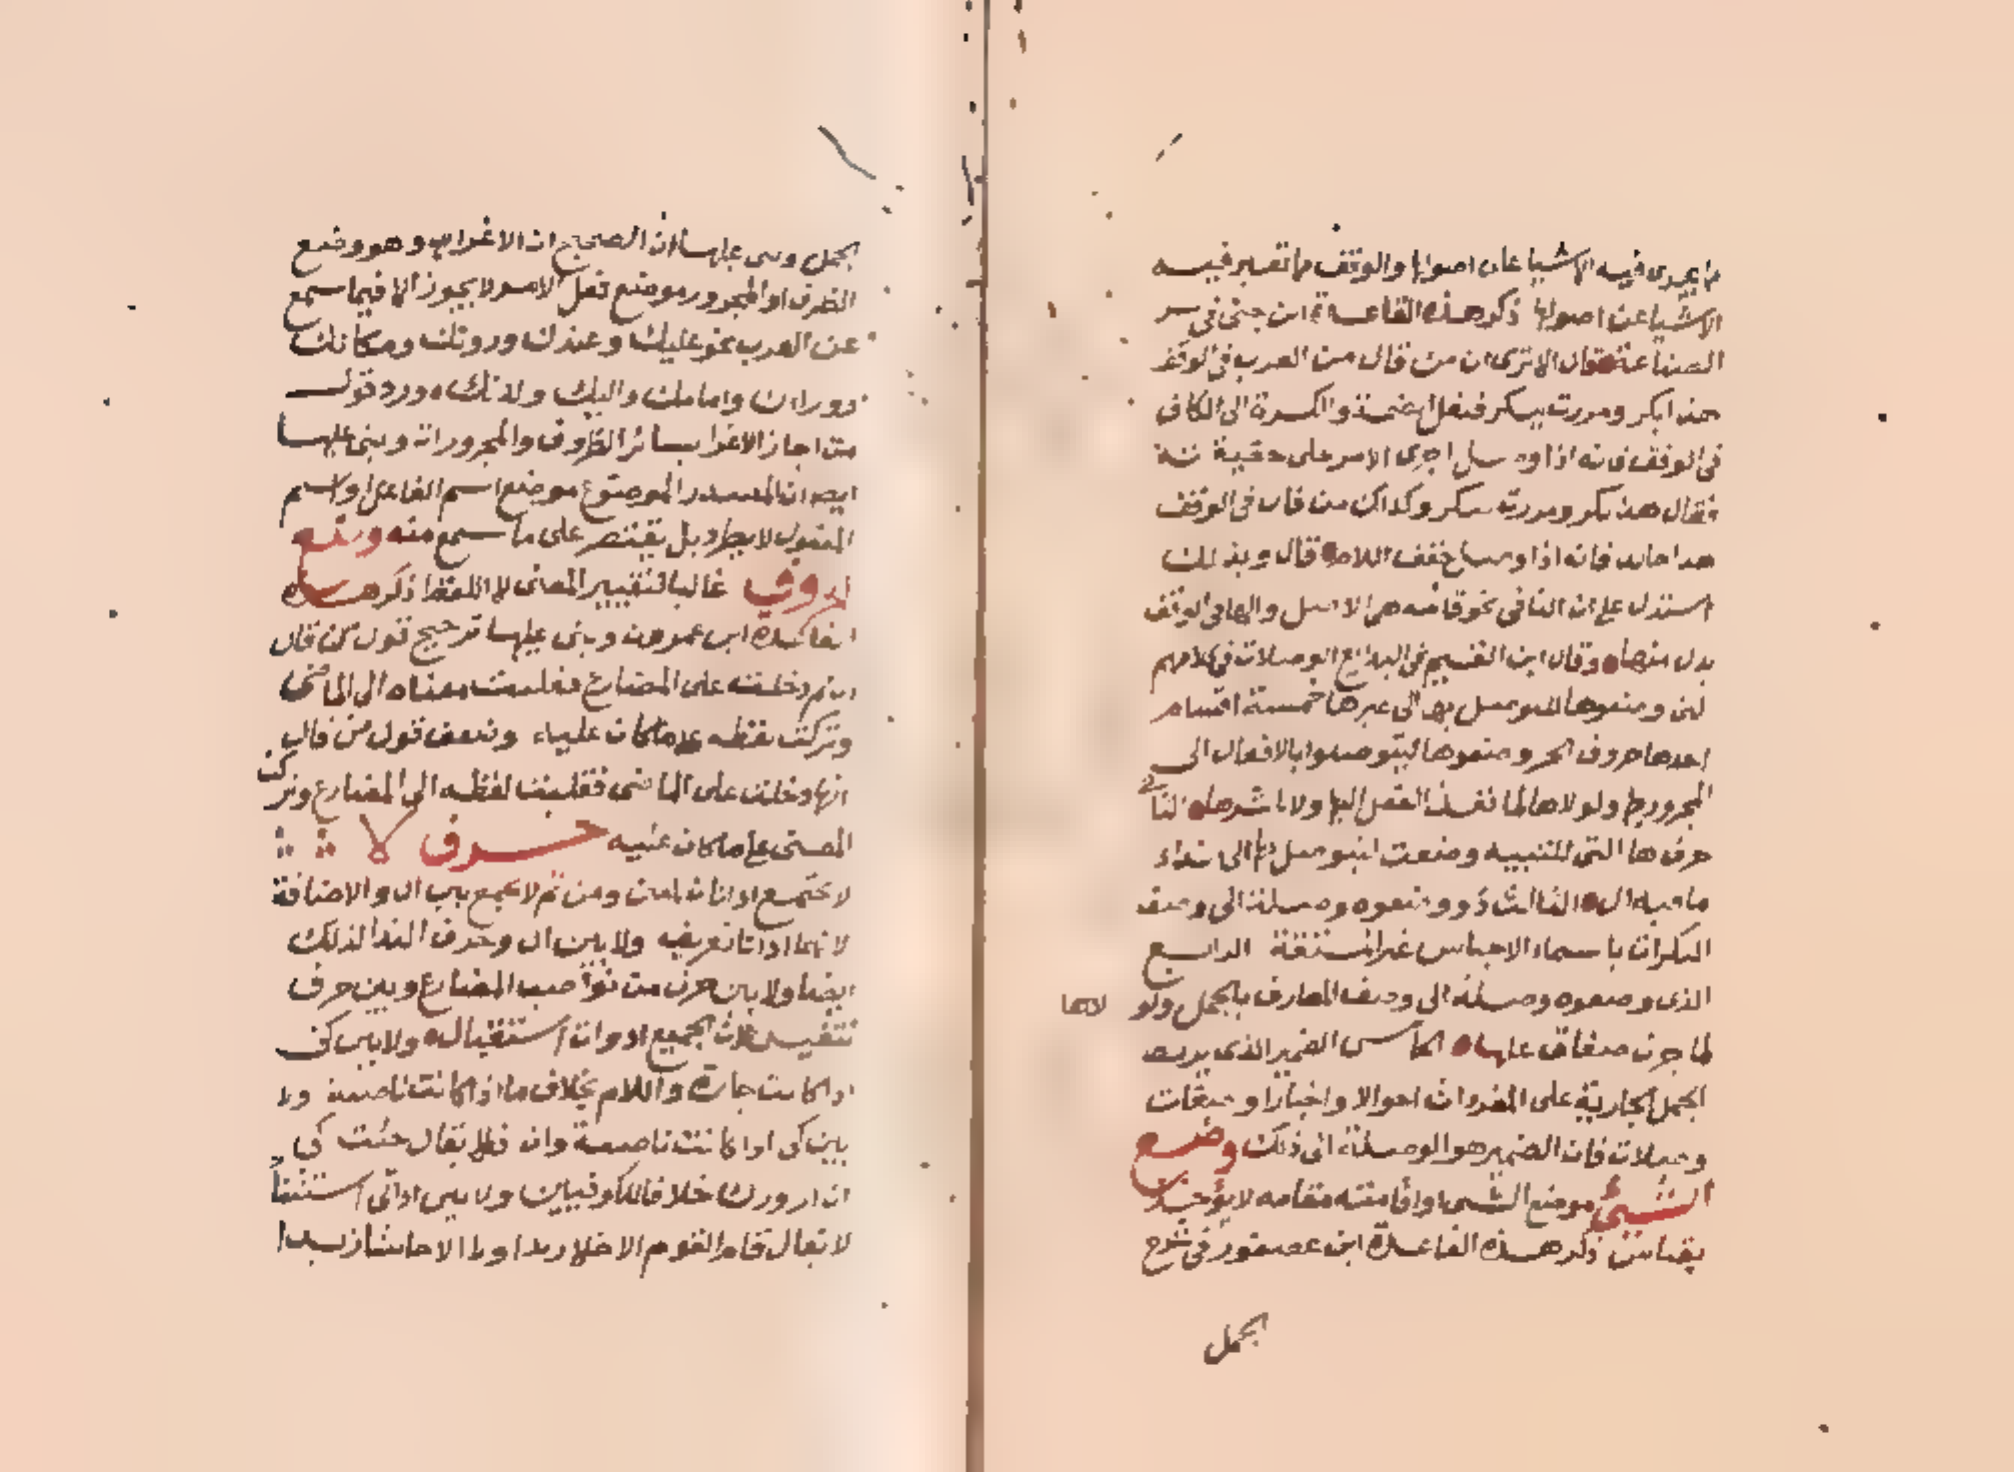 ما يجرى فيه الاشيا على اصولها والوقف ما تغير فيه
الاشيا عن اصولها ذكر هذه القاعدة ابن جنى فى سر
الصناعة قال الا ترى ان من قال من العرب فى الوقف
هذا بكر ومررت ببكر فنقل الضمة والكسرة الى الكاف
فى الوقف فانه اذا وصل اجرى الامر على حقيقته
فقال هذا بكر ومررت ببكر وكذلك من قال فى الوقف
هذا خالد فانه اذا وصل خفف اللام قال وبذلك
استدل على ان التا فى نحو قائمة هى الاصل والها فى الوقف
بدل منها وقال ابن القيم فى البدايع الوصلات فى كلامهم
التى وضعوها للتوصل بها الى غيرها خمسة اقسام
احدها حروف الجر وضعوها ليتوصلوا بالافعال الى
المجرور بها ولولاها لما نفذ الفعل اليها ولا باشرها الثانى
حرف ها التى للتنبيه وضعت ليتوصل بها الى نداء
ما فيه ال الثالث ذو وضعوه وصلة الى وصف
النكرات باسماء الاجناس غير المشتقة الرابع
الذى وضعوه وصلة الى وصف المعارف بالجمل ولولاها
لما جرت صفات عليها الخامس الضمير الذى يربط
الجمل الجارية على المفردات احوالا واخبارا وصفات
وصلات فان الضمير هو الوصلة الى ذلك وضع
الشىء موضع الشىء او اقامته مقامه لا يؤخذ
بقياس ذكر هذه القاعدة ابن عصفور فى شرح
الجمل
الجمل وبنى عليها ان الصحيح ان الاغراء وهو وضع
الظرف او المجرور موضع فعل الامر لا يجوز الا فيما سمع
عن العرب نحو عليك وعندك ودونك ومكانك
ووراءك وامامك واليك ولدنك ورد قول
من اجاز الاغراء بسائر الظروف والمجرورات وبنى عليها
ايضا ان المصدر الموضوع موضع اسم الفاعل او اسم
المفعول لا يطرد بل يقتصر على ما سمع منه وضع
الحروف غالبا لتغيير المعنى لا اللفظ ذكر هذه
القاعدة ابن عمرون وبنى عليها ترجيح قول من قال
ان لم دخلت على المضارع فقلبت معناه الى الماضى
وتركت لفظه على ما كان عليه وضعف قول من قال
انها دخلت على الماضى فقلبت لفظه الى المضارع وتركت
المعنى على ما كان عليه حرف لا
لا تجتمع اداتان لمعنى ومن ثم لا يجمع بين ال والاضافة
لانهما اداتا تعريف ولا بين ال وحرف الندا لذلك
ايضا ولا بين حرف من نواصب المضارع وبين حرف
تنفيس لان الجميع ادوات استقبال ولا بين كى
اذا كانت جارة واللام بخلاف ما اذا كانت ناصبة ولا
بين كى اذا كانت ناصبة وان فلا يقال جئت كى
ان ازورك خلافا للكوفيين ولا بين اداتى استثنا
لا يقال قام القوم الا خلا زيدا ولا الا حاشا زيدا